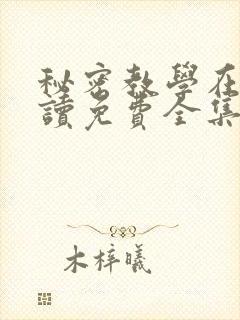 秘密教學在
讀免費全集
木梓曦